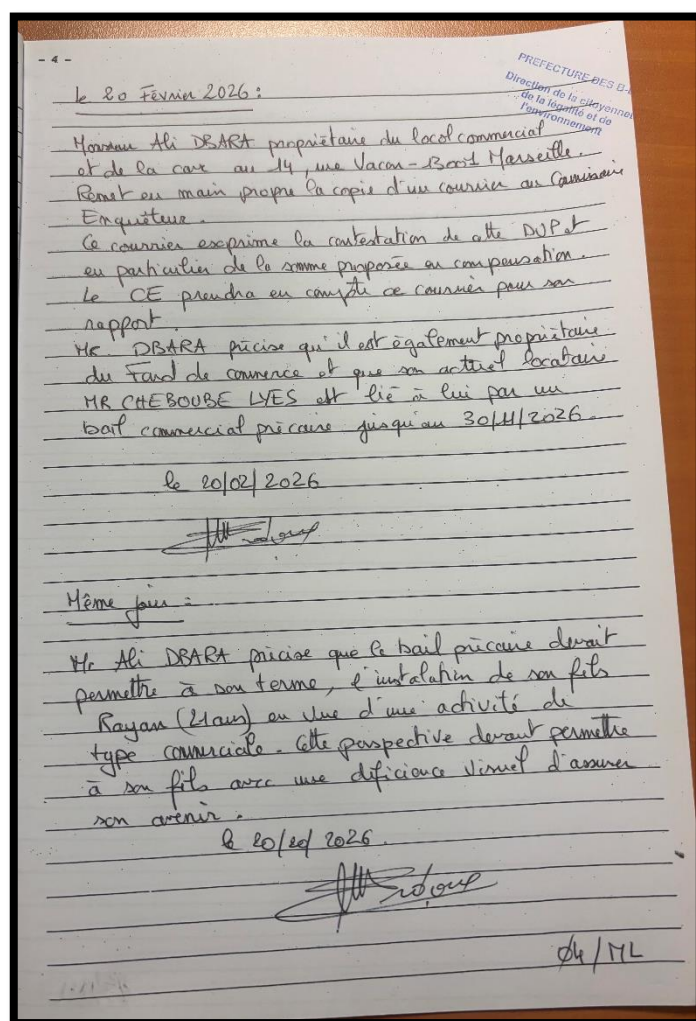 - 4 -
PREFECTURE DES B-
Direction de la citoyenne
de la légalité et de
l'environnement
le 20 Février 2026 :
Monsieur Ali DBARA propriétaire du local commercial
et de la cave au 14, rue Vacon - 13001 Marseille.
Remet en main propre la copie d'un courrier au Commissaire
Enquêteur.
Ce courrier exprime la contestation de cette DUP et
en particulier de la somme proposée en compensation.
Le CE prendra en compte ce courrier pour son
rapport.
Mr. DBARA précise qu'il est également propriétaire
du Fond de commerce et que son actuel locataire
MR CHEBOUBE LYES est lié à lui par un
bail commercial précaire jusqu'au 30/11/2026.
le 20/02/2026
Même jour :
Mr Ali DBARA précise que le bail précaire devait
permettre à son terme, l'instalation de son fils
Rayan (21ans) en vue d'une activité de
type commerciale. Cette perspective devant permettre
à son fils avec une déficience visuel d'assurer
son avenir.
le 20/20/2026.
04/ML